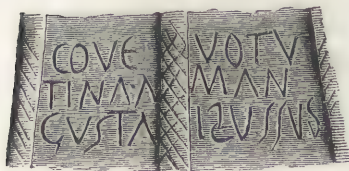 COVE
TINAA
GUSTA
VOTV
MAN
IBUSSUS